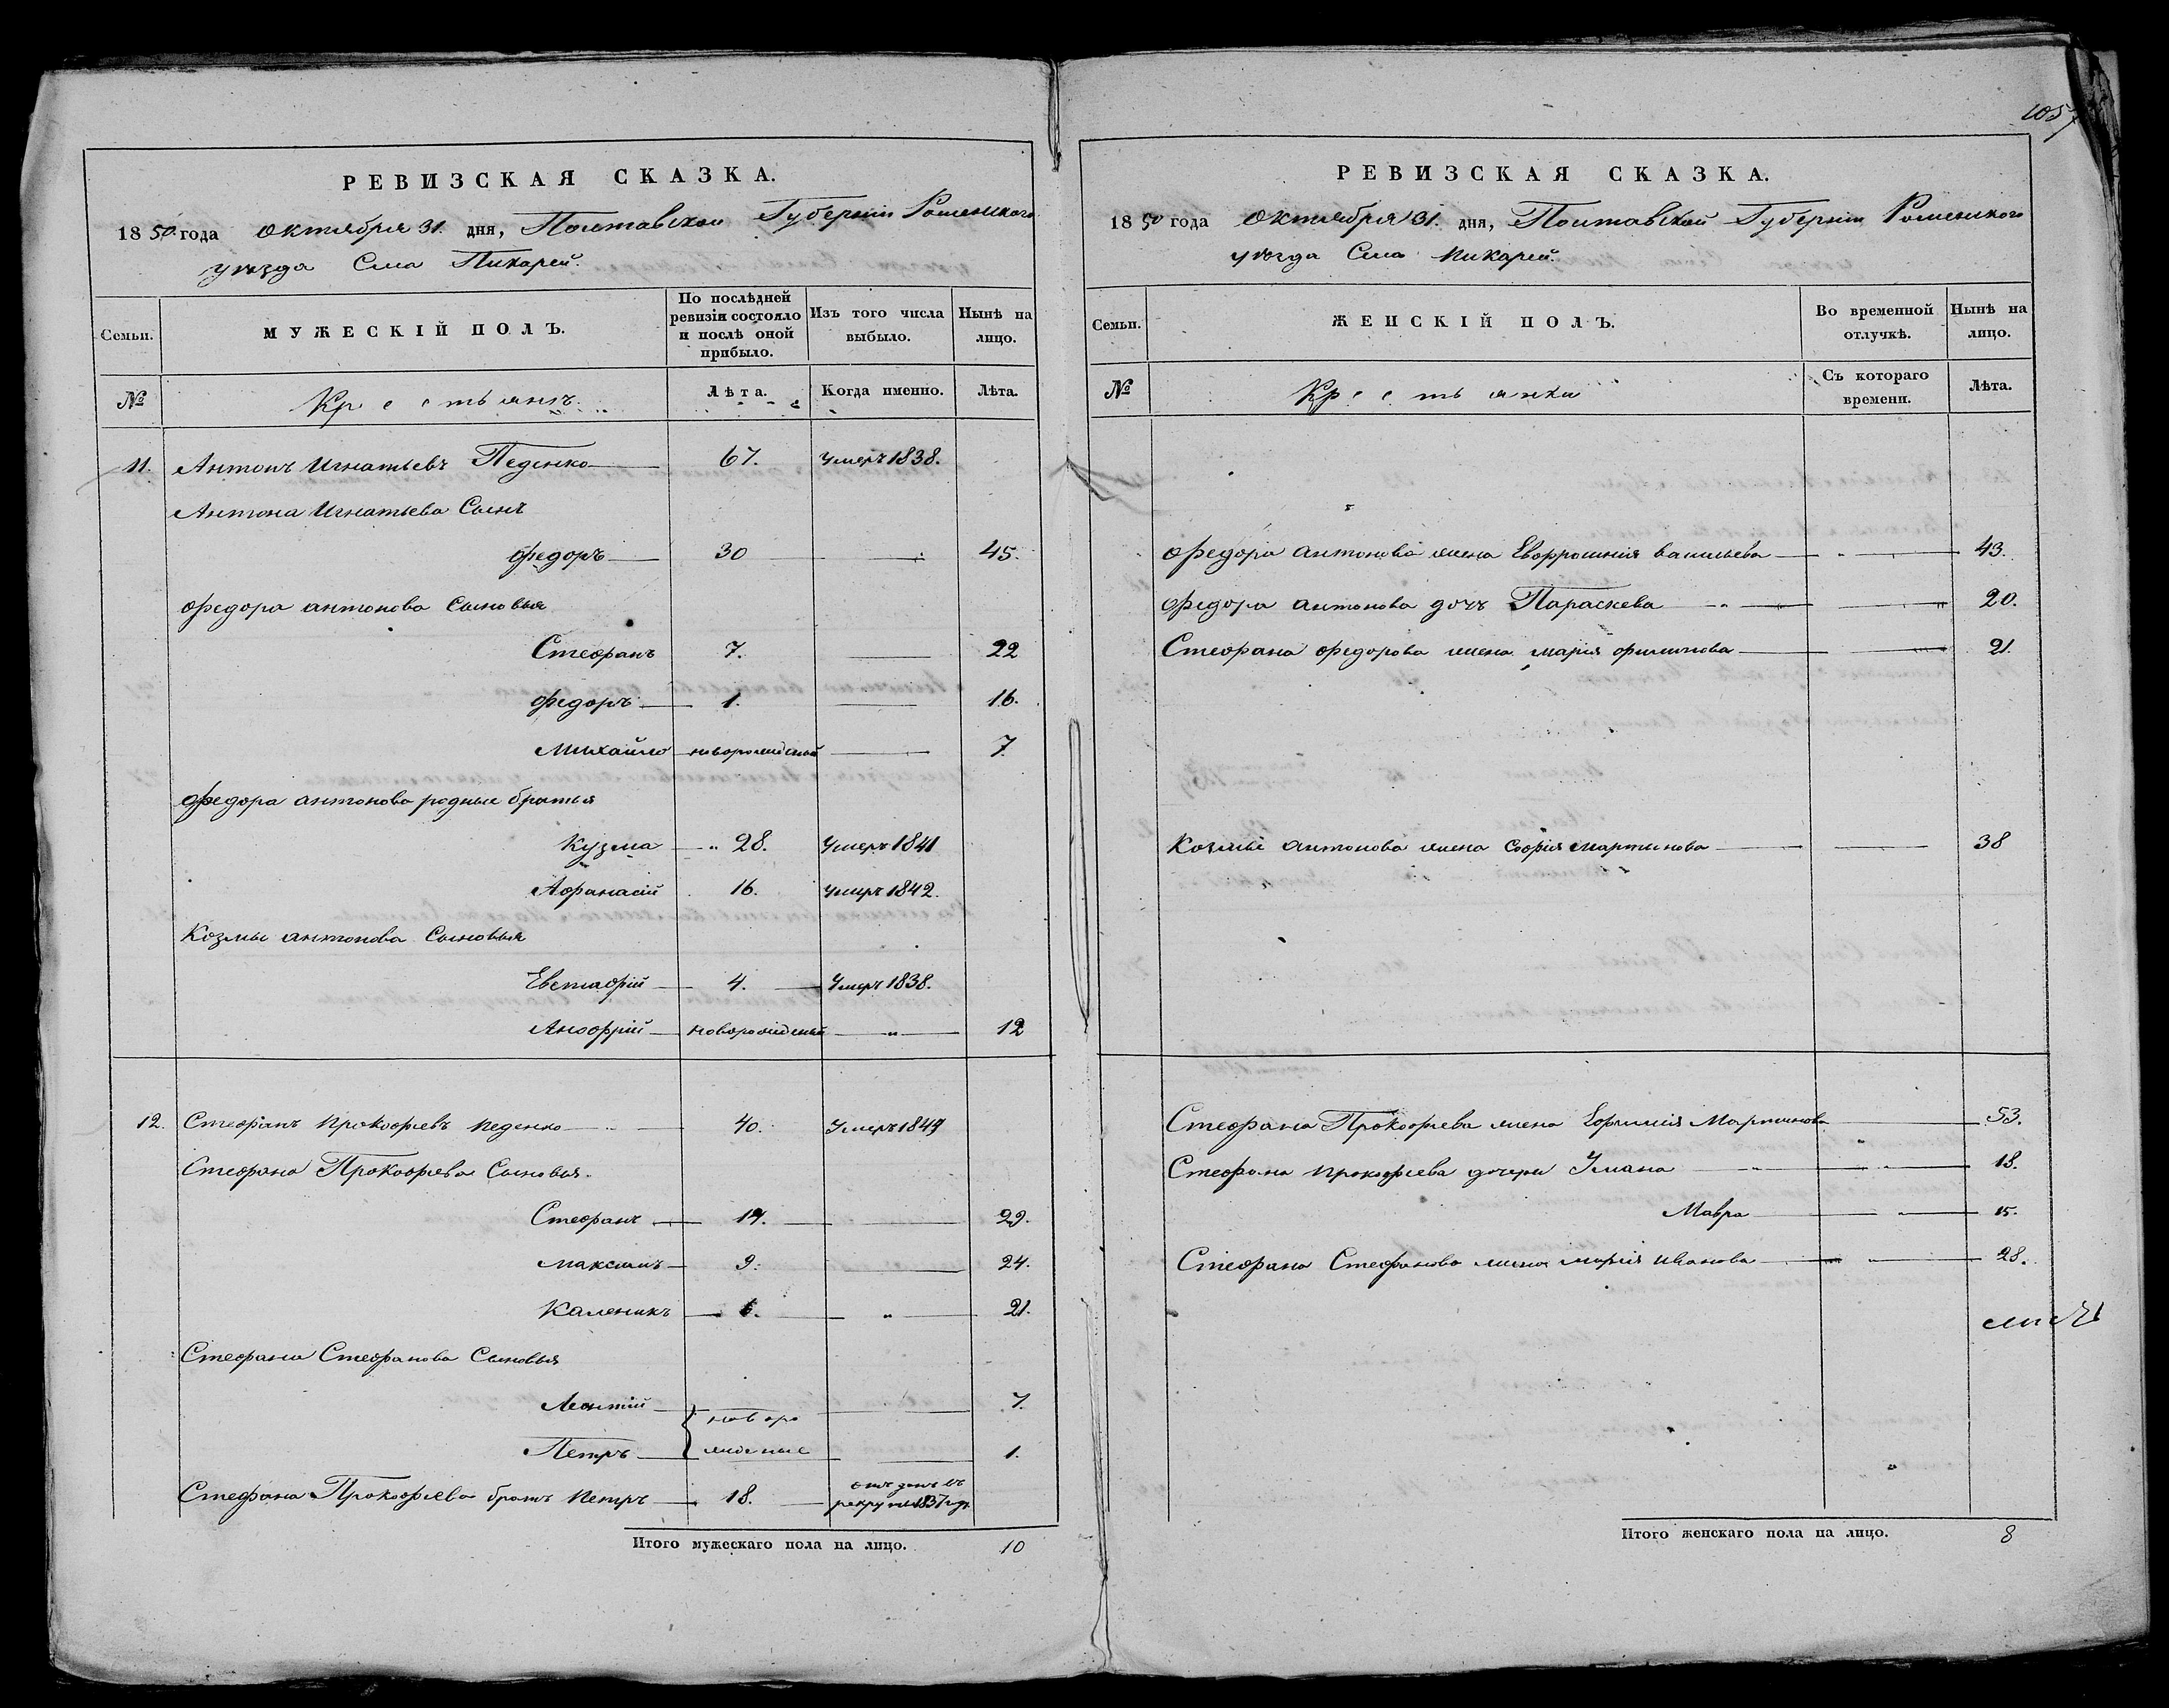 105
РЕВИЗСКАЯ СКАЗКА.
1850 года октября 31. дня, Полтавской Губерніи Роменскаго
уѣзда Села Пикарей.
Семьи.
МУЖЕСКІЙ ПОЛЪ.
По послѣдней ревизіи состояло и послѣ оной прибыло.
Изъ того числа выбыло.
Нынѣ на лицо.
№ Крестьянъ. Лѣта. Когда именно. Лѣта.
11. Антонъ Игнатьевъ Педенко 67. Умеръ 1838.
Антона Игнатьева Сынъ
Федоръ 30 45.
Федора Антонова Сыновья
Стефанъ 7. 22
Федоръ 1. 16.
Михайло новорожденый 7.
Федора Антонова родные братья
Кузма 28. Умеръ 1841
Афанасій 16. Умеръ 1842.
Козмы Антонова Сыновья
Евстафій 4. Умеръ 1838.
Анофрій новорожденый 12
12. Стефанъ Прокофьевъ Педенко 40. Умеръ 1849
Стефана Прокофьева Сыновья.
Стефанъ 14. 29.
Максимъ 9. 24.
Каленикъ 6. 21.
Стефана Стефанова Сыновья
Леонтій новоро 7.
Петръ жденые 1.
Стефана Прокофьева братъ Петръ 18. отданъ въ рекруты 1837 года
Итого мужескаго пола на лицо. 10
РЕВИЗСКАЯ СКАЗКА.
1850 года Октября 31. дня, Полтавской Губерніи Роменскаго
уѣзда Села Пикарей.
Семьи.
ЖЕНСКІЙ ПОЛЪ.
Во временной отлучкѣ.
Нынѣ на лицо.
№ Крестьянки Съ котораго времени. Лѣта.
Федора Антонова жена Евфросинія Васильева 43.
Федора Антонова дочь Параскева 20.
Стефана Федорова жена Марія Филипова 21.
Козмы Антонова жена Софія Мартынова 38
Стефана Прокофьева жена Ефимія Мартынова 53.
Стефана Прокофьева дочери Ульяна 18.
Мавра 15.
Стефана Стефанова жена Марія Иванова 28.
Итого женскаго пола на лицо. 8